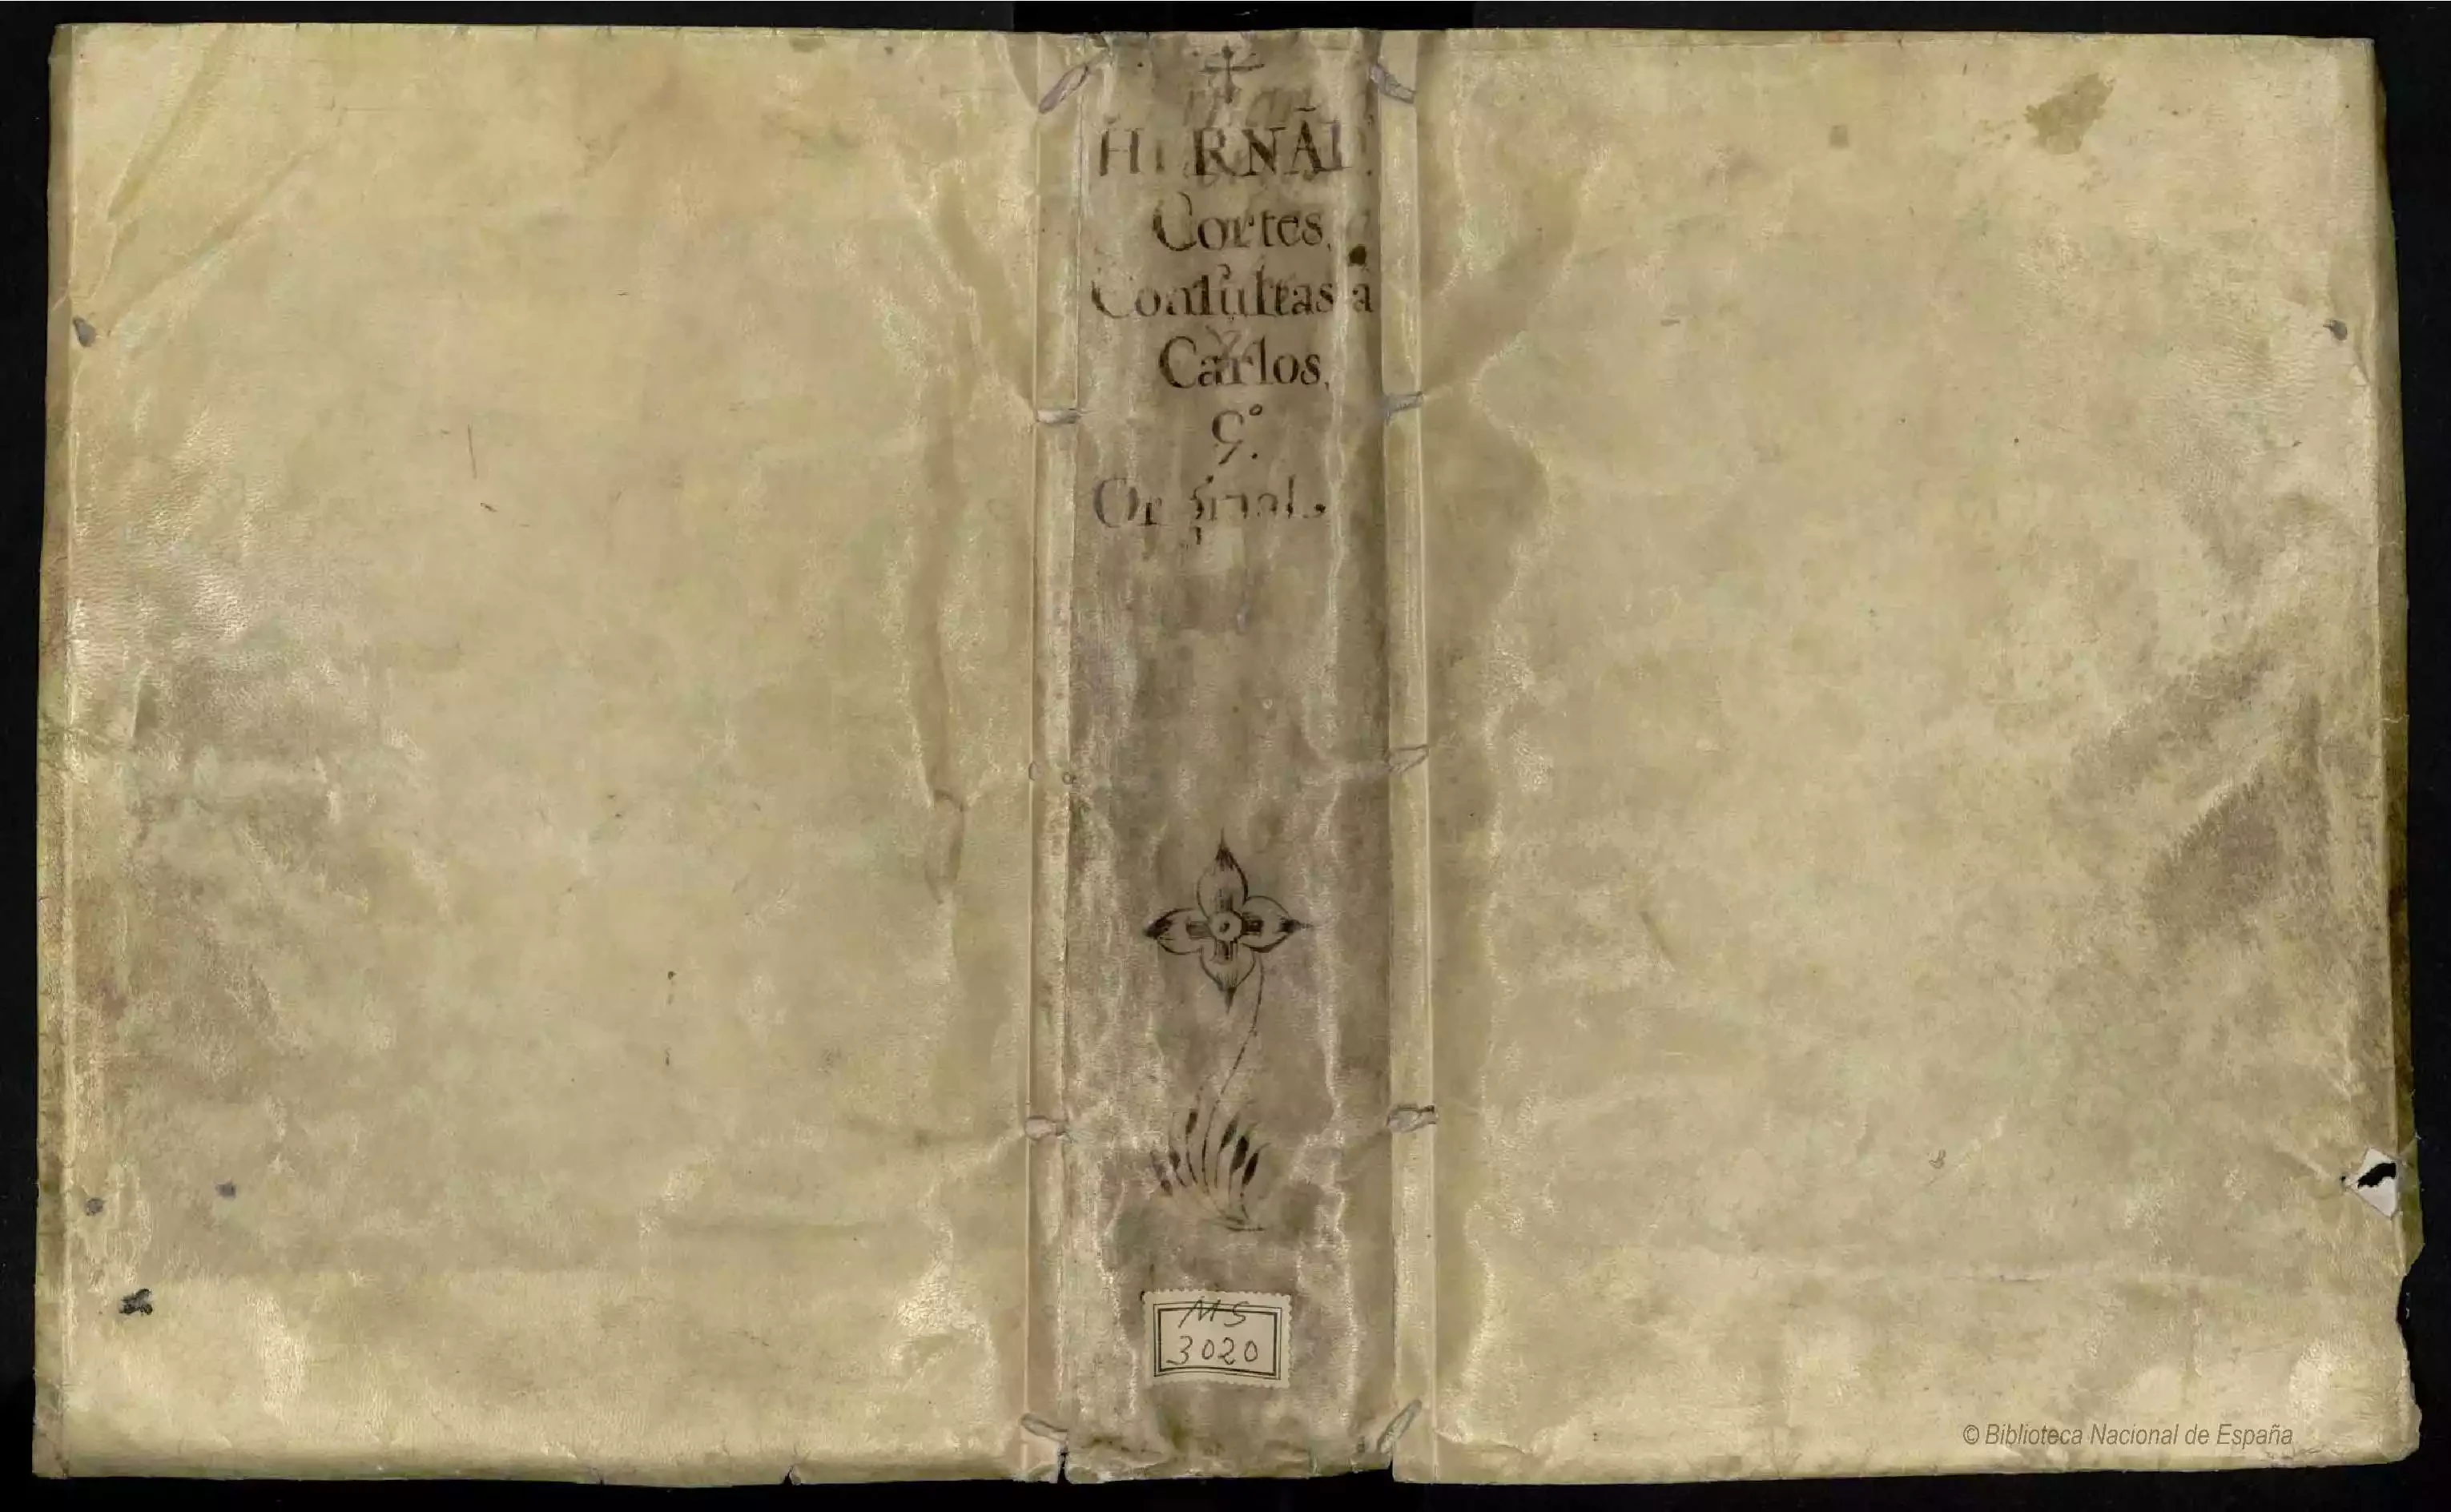 HERNÃ
Cortes,
Consultas a
Carlos,
5º.
Original.
MS
3020
© Biblioteca Nacional de España